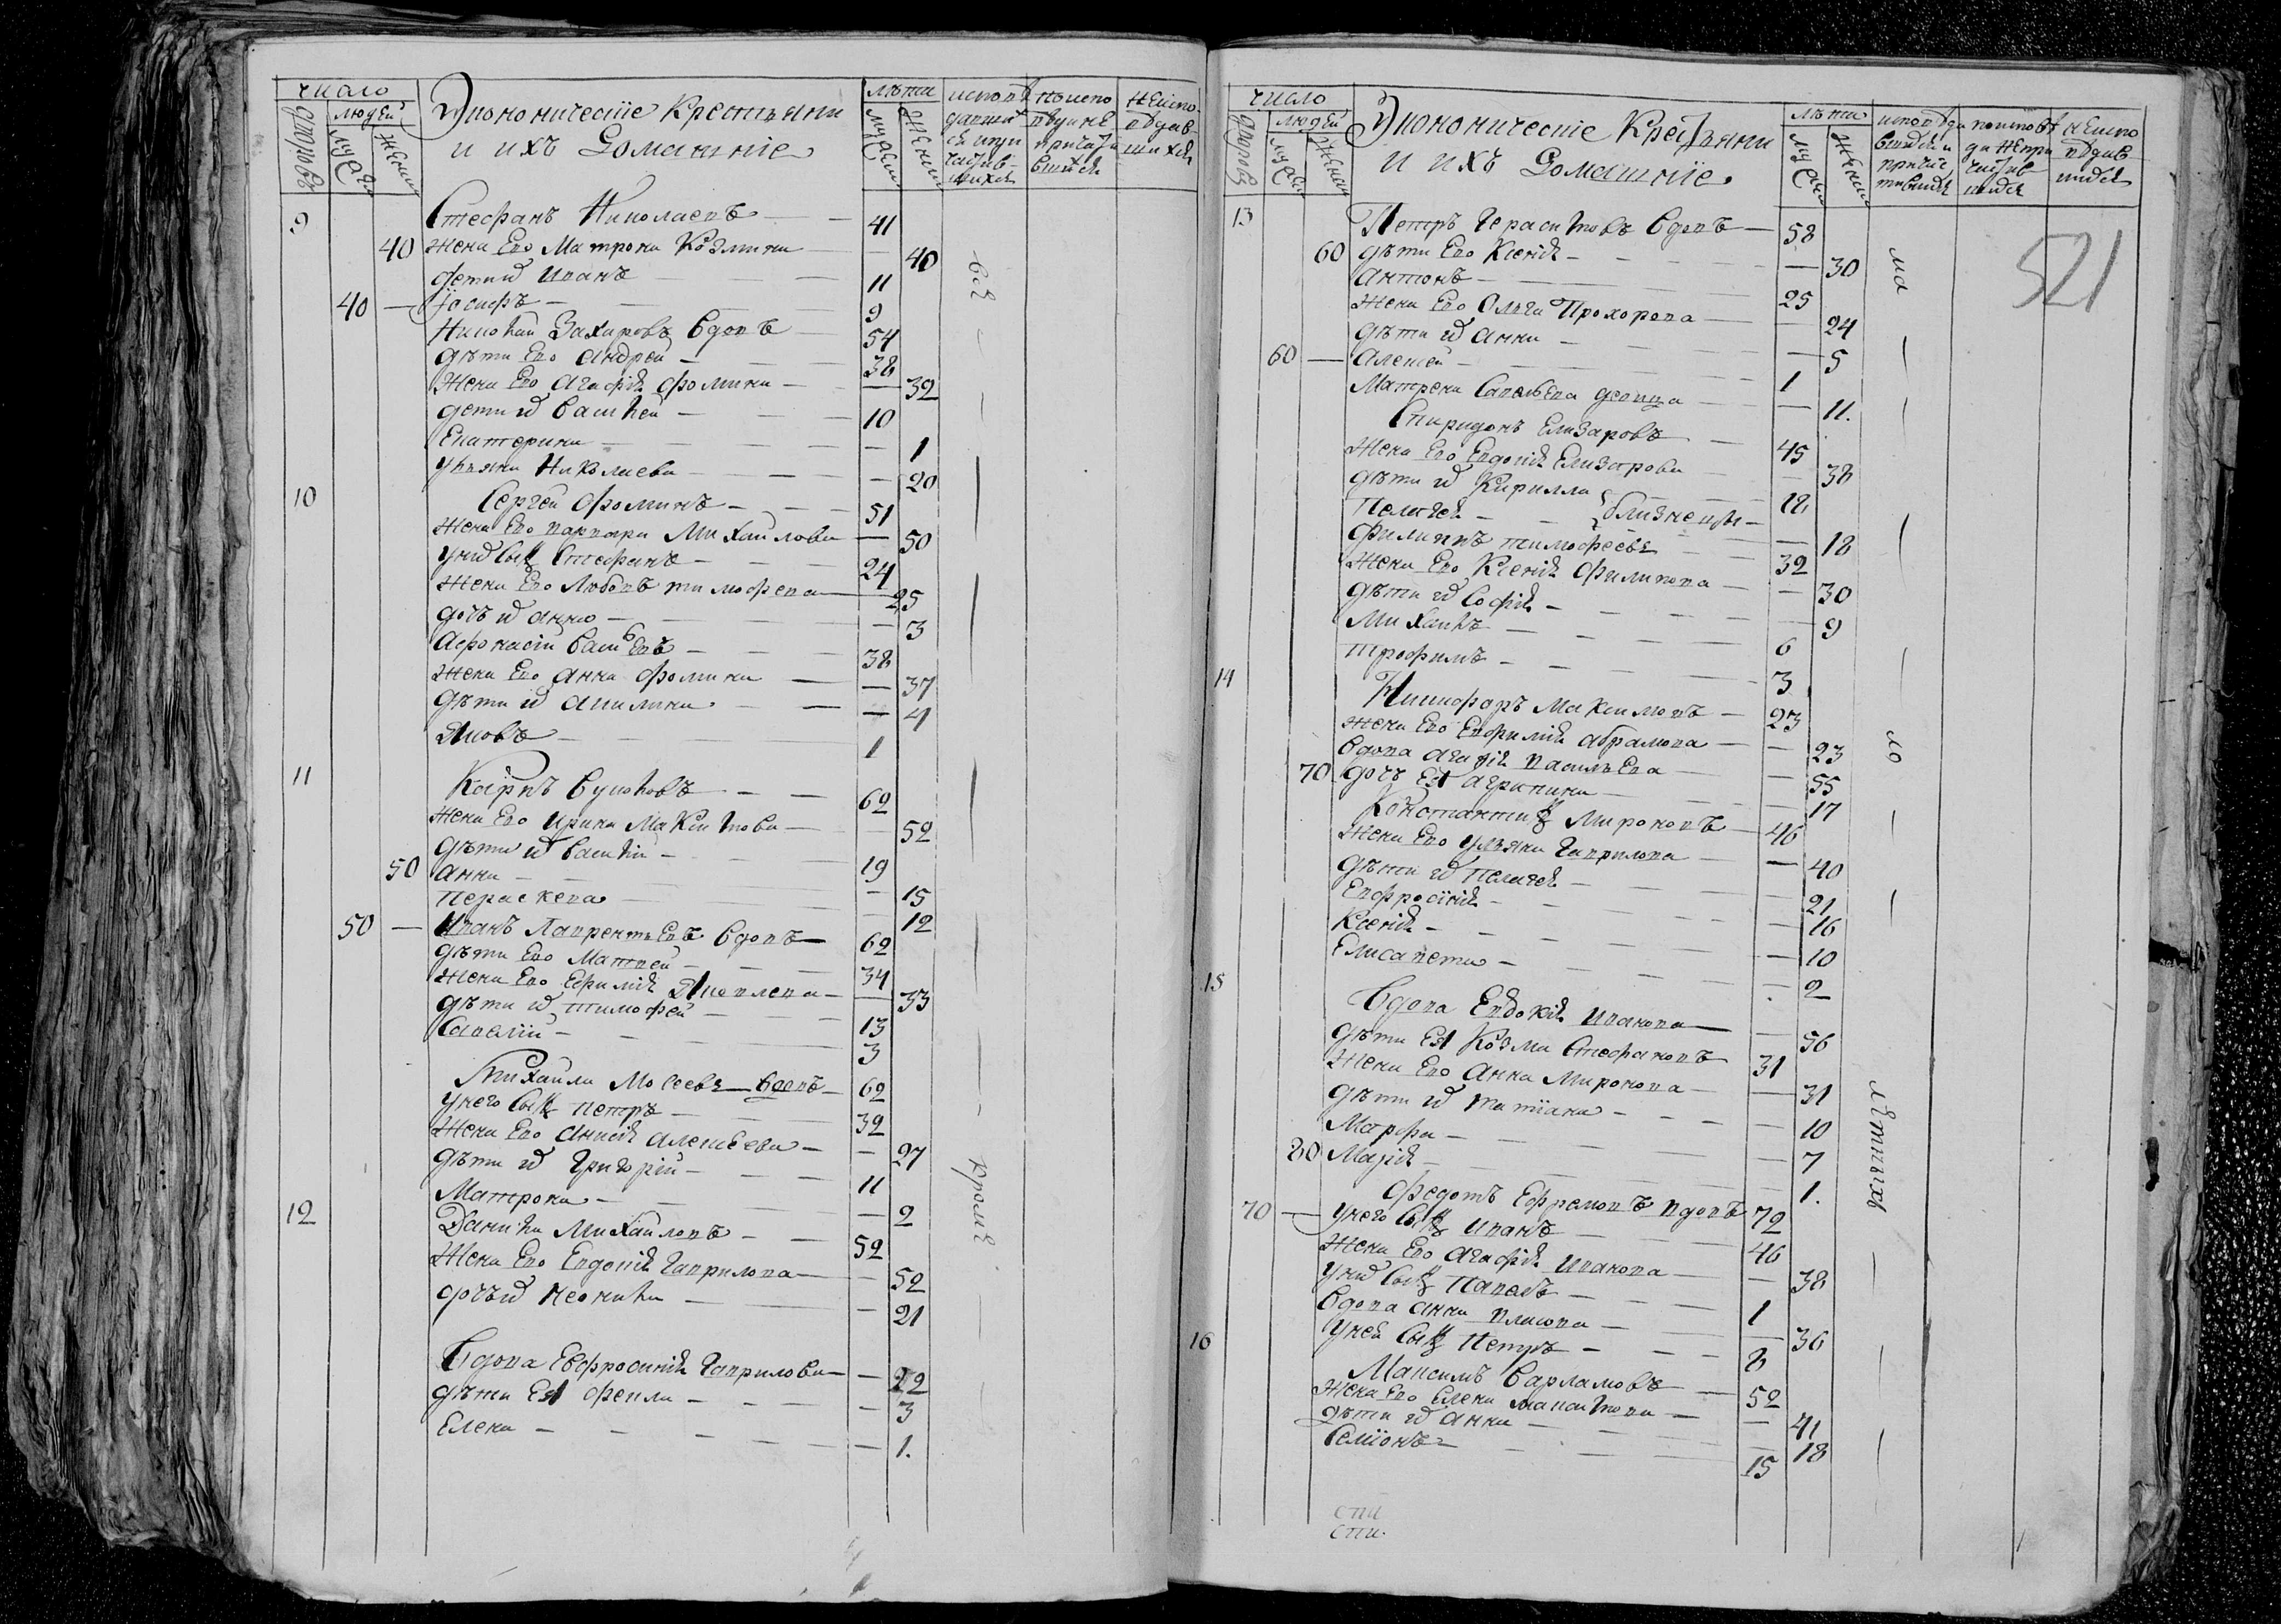 число
дворовъ
людей
муж
женска
Экономическiе Крестьяни
и ихъ Домашнiе
лѣта
мужски
женски
9 Стефанъ Николаевъ — 41
40 жена Его Матрона Козмина — 40
дети и Иванъ — 11
40 — Iосифъ — 9
Николай Захаровъ вдовъ 54
дѣти Его Андрей — 38
жена Его Агафiя Фомина — 32
дети и Василей — 10
Екатерина — 1
Ульяна Николаева — 20
10 Сергей Фоминъ — 51
жена Его Варвара Михайлова — 50
у них сынъ Стефанъ — 24
жена Его Любовъ тимофеева — 25
дочъ их анна — 3
Афонасiй Василевъ — 38
жена Его анна Фомина — 37
дѣти их акилина — 4
Яковъ — 1
11 Карпъ Вуколовъ — 62
жена Его Ирина Максимова — 52
дѣти их Василiй — 19
50 анна — 15
Параскева — 12
50 — Иванъ Лаврентьевъ вдовъ — 62
дѣти Его Матвей — 34
жена Его Ефимiя Яковлева — 33
дѣти их тимофей — 13
Савелiй — 3
Михайла Моѵсеевъ — вдовъ — 62
у него сынъ петръ — 32
жена Его Анисiя алексѣева — 27
дѣти их Григорiй — 11
Матрона — 2
12 Данила Михайловъ — 52
жена Его Евдокiя Гаврилова — 52
дочъ их Неонила — 21
Вдова Евфросинiя Гаврилова — 22
дѣти Ея Фекла — 3
Елена — 1.
все
кромѣ
число
дворовъ
людей
муж
женска
Экономическiе Крестьяни
и ихъ Домашнiе
лѣта
мужски
женски
521
13 Петръ Герасимовъ вдовъ — 58
60 дѣти Его Ксенiя — 30
антонъ — 25
жена Его Ольга Прохорова — 24
дѣти их анна — 5
60 — алексей — 1
Матрена Савельева девица — 11.
Спиридонъ Елизаровъ — 45
жена Его Евдокiя Елизарова — 38
дѣти их Кирилла 18
Пелагея — близнецы — 18
Филиппъ тимофеевъ 32
жена Его Ксенiя Филипова — 30
дѣти их Софiя — 9
Михаилъ — 6
трофимъ — 3
14 Никифоръ Максимовъ — 23
жена Его Ефимiя абрамова — 23
вдова агафiя васильева — 55
70 дочь Ея агрипина — 17
Константинъ Мироновъ — 46
жена Его ульяна Гаврилова — 40
дѣти их Пелагея — 21
Евфросинiя — 16
Ксенiя — 10
Елисавета — 2
15 Вдова Евдокiя иванова — 56
дѣти Ея Козма Стефановъ 31
жена Его Анна Миронова — 31
дѣти их татiана — 10
Марфа — 7
80 Марiя — 1.
Федотъ Ефремовъ вдовъ 72
70 — у него сынъ иванъ — 46
жена Его агафiя иванова — 38
у них сынъ Павелъ — 1
вдова анна власова — 36
у ней сынъ Петръ — 8
16 Максимъ Варламовъ — 52
жена Его Елена Максимова — 41
дѣти их анна — 18
Семiонъ — 15
ма
ло
лѣтныхъ